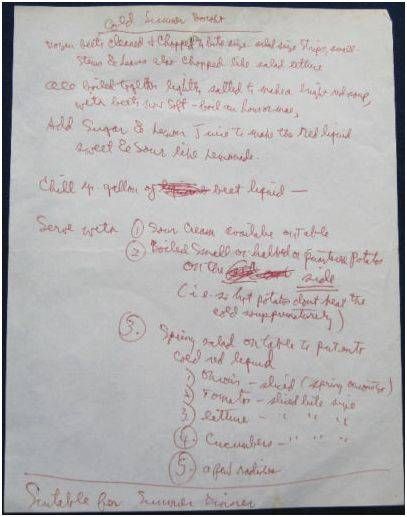 Cold Summer Borsht
Dozen beets cleaned & chopped in bite size salad size strips, small
Stems & leaves also chopped like salad lettuce
all boiled together lightly salted to make a bright red soup,
with beets now soft - boil an hour or more,
Add Sugar & Lemon Juice to make the red liquid
sweet & sour like Lemonade.
Chill 4 gallon of beet liquid —
Serve with ① Sour Cream available on table
② Boiled small or halved or quarters Potatos
on the side
(i-e- so hot potatos dont heat the
cold soup prematurely)
3. Spring salad on table to put into
cold red liquid
1) Onion - sliced (spring onions)
2 Tomatos - sliced bite size
3) lettuce - " " "
4. Cucumbers - " " "
5. a few radishes
Suitable for Summer Dinner